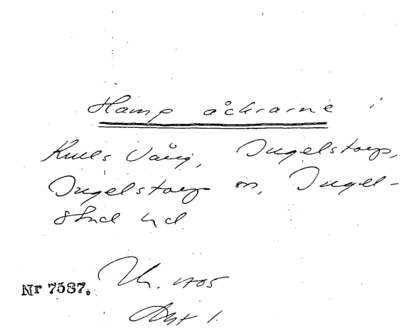 Hamp åkrarne i
Kulls Vång, Ingelstorp,
Ingelstorp sn, Ingel-
stad hd
Nr 7587. 1705
Akt 1.